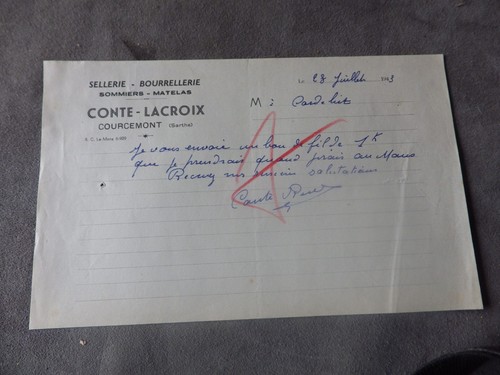 SELLERIE - BOURRELLERIE
SOMMIERS - MATELAS
CONTE-LACROIX
COURCEMONT (Sarthe)
R. C. Le Mans
le 28 Juillet
M :
Je vous envoie un bon de fil de 1K
que je prendrais quand j'irais au Mans
Recevez mes salutations
Conte